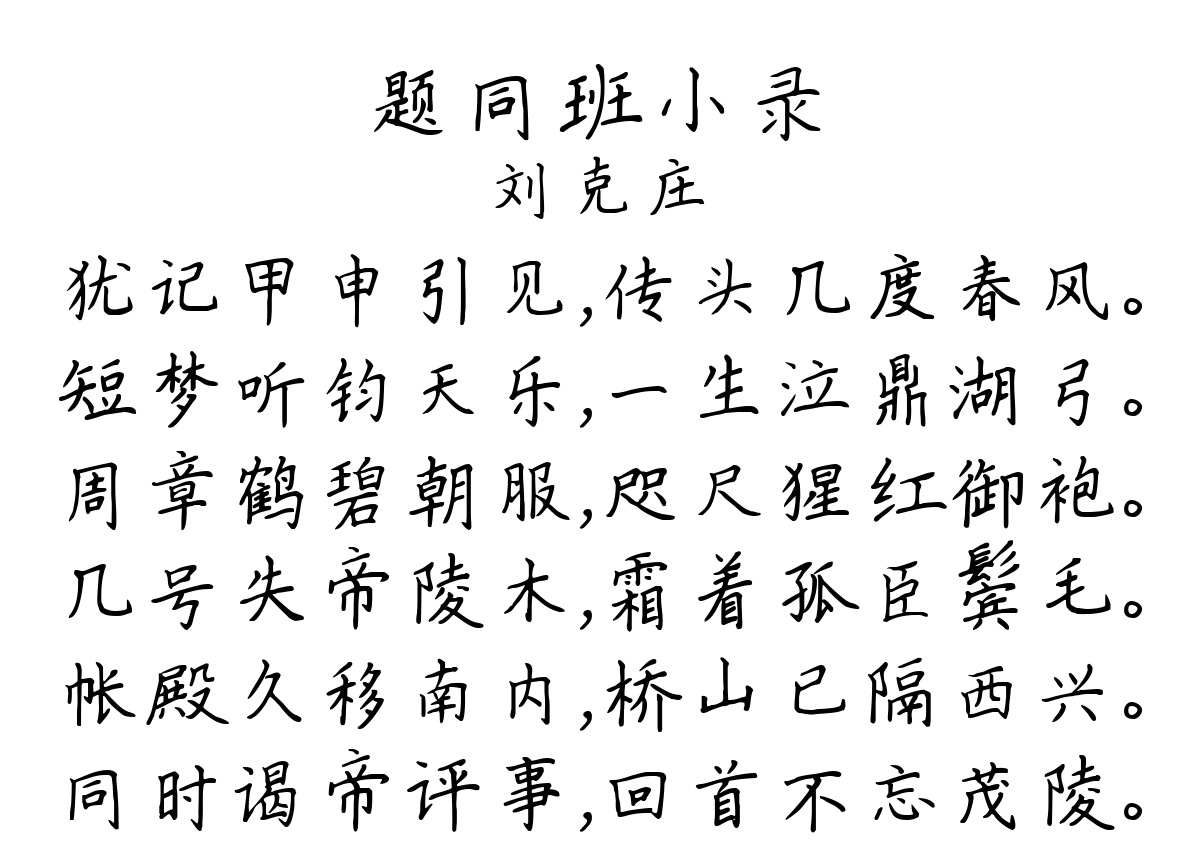 题同班小录
刘克庄
犹记甲申引见,传头几度春风。
短梦听钧天乐,一生泣鼎湖弓。
周章鹤碧朝服,咫尺猩红御袍。
几号失帝陵木,霜着孤臣鬓毛。
帐殿久移南内,桥山已隔西兴。
同时谒帝评事,回首不忘茂陵。